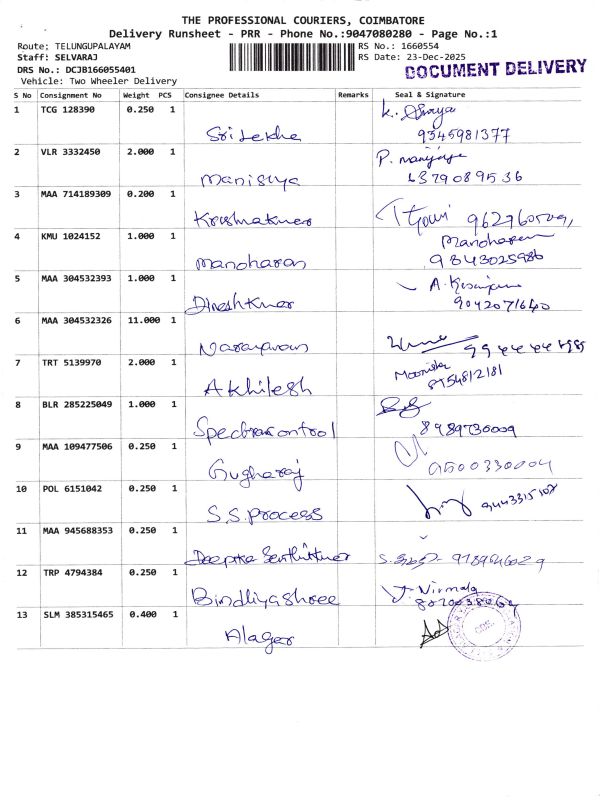 THE PROFESSIONAL COURIERS, COIMBATORE
Delivery Runsheet - PRR - Phone No.:9047080280 - Page No.:1
Route; TELUNGUPALAYAM
Staff: SELVARAJ
DRS No.: DCJB166055401
Vehicle: Two Wheeler Delivery
RS No.: 1660554
RS Date: 23-Dec-2025
DOCUMENT DELIVERY
S No Consignment No Weight PCS Consignee Details Remarks Seal & Signature
1 TCG 128390 0.250 1 Srilekha
9345981377
2 VLR 3332450 2.000 1 Manisiya P.
6379089536
3 MAA 714189309 0.200 1 Krishnakumar
4 KMU 1024152 1.000 1 Manoharan Manoharan
9843025986
5 MAA 304532393 1.000 1 Dineshkumar A.
9042071640
6 MAA 304532326 11.000 1 Narayanan
7 TRT 5139970 2.000 1 Akhilesh
8754812181
8 BLR 285225049 1.000 1 Spectrocontrol
8989730009
9 MAA 109477506 0.250 1 Gugharaj
9500330004
10 POL 6151042 0.250 1 S.S.process
9443315108
11 MAA 945688353 0.250 1 Deepika Senthilkumar
12 TRP 4794384 0.250 1 Bindhiyashree J. Nirmala
13 SLM 385315465 0.400 1 Alager